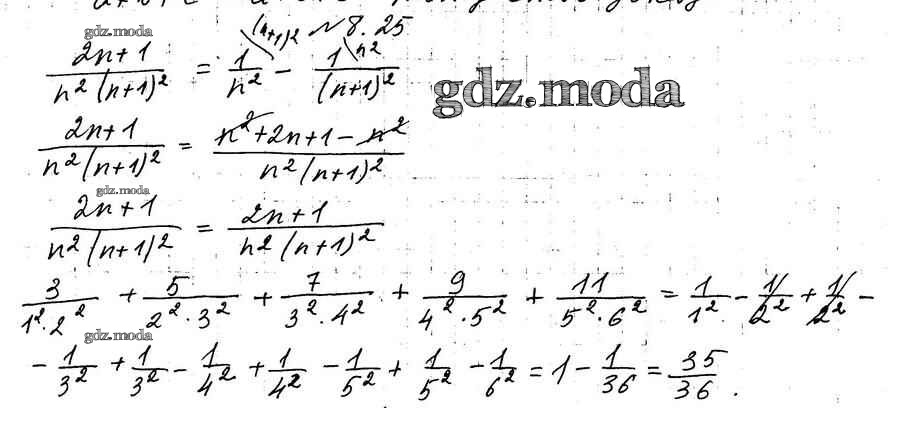 gdz.moda
(n+1)² №8.25
\frac{2n+1}{n²(n+1)²} = \frac{1}{n²} - \frac{1}{(n+1)²} n²
gdz.moda
\frac{2n+1}{n²(n+1)²} = \frac{n²+2n+1-n²}{n²(n+1)²}
gdz.moda
\frac{2n+1}{n²(n+1)²} = \frac{2n+1}{n²(n+1)²}
\frac{3}{1²·2²} + \frac{5}{2²·3²} + \frac{7}{3²·4²} + \frac{9}{4²·5²} + \frac{11}{5²·6²} = \frac{1}{1²} - \frac{1}{2²} + \frac{1}{2²} -
gdz.moda
- \frac{1}{3²} + \frac{1}{3²} - \frac{1}{4²} + \frac{1}{4²} - \frac{1}{5²} + \frac{1}{5²} - \frac{1}{6²} = 1 - \frac{1}{36} = \frac{35}{36}.